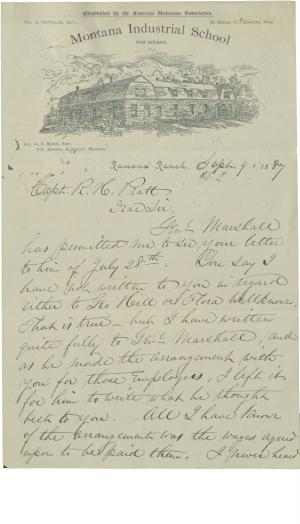 Established by the American Unitarian Association.
Montana Industrial School
FOR INDIANS.
Rev. H. F. Bond, Supt.
Ramona Ranch, Sept. 9 1887
Capt. R. H. Pratt
Dear Sir,
Gen'l Marshall
has permitted me to see your letter
to him of July 28th. You say I
have not written to you in regard
either to Geo Hill or Flora Wellknown.
That is true - but I have written
quite fully to Gen'l Marshall, and
as he made the arrangement with
you for those employees, I left it
for him to write what he thought
best to you. All I have known
of the arrangement was the wages agreed
upon to be paid them. I never heard